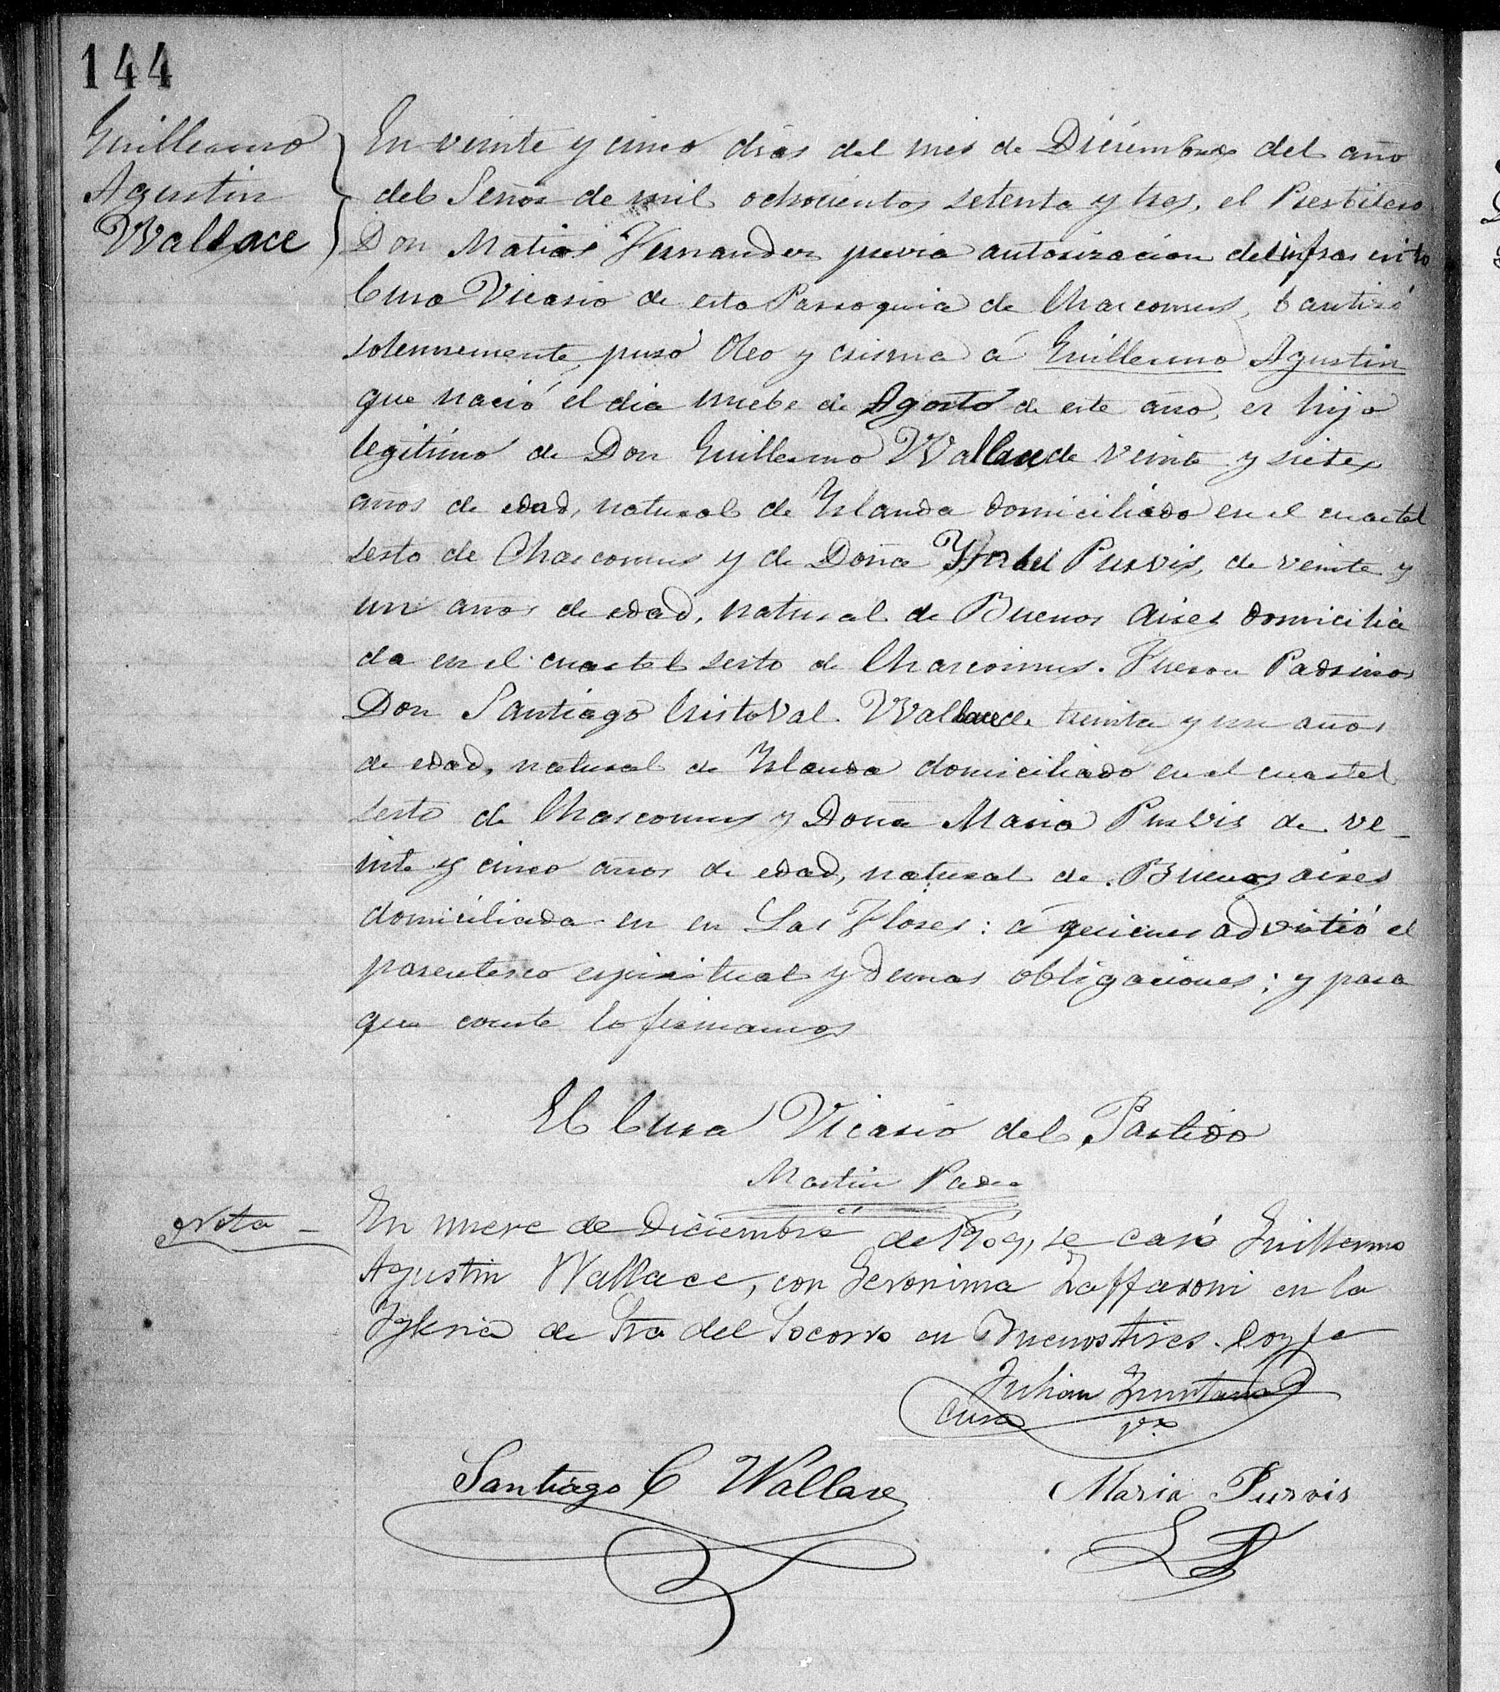 144
Guillermo
Agustin
Wallace
En veinte y cinco dias del mes de Diciembre del año
del Señor de mil ochocientos setenta y tres, el Presbitero
Don Matias Fernandez previa autorizacion del infrascrito
Cura Vicario de esta Parroquia de Chascomus, bautizó
solennemente, puso Oleo y crisma á Guillermo Agustin
que nació el dia nuebe de Agosto de este año, es hijo
legitimo de Don Guillermo Wallace de veinte y siete
años de edad, natural de Yrlanda domiciliado en el cuartel
sesto de Chascomus y de Doña Purvis, de veinte y
un años de edad, natural de Buenos Aires domicilia
da en el cuartel sesto de Chascomus. Fueron Padrinos
Don Santiago Cristoval Wallace de treinta y un años
de edad, natural de Yrlanda domiciliado en el cuartel
sesto de Chascomus y Doña Maria Purvis de ve-
inte y cinco años de edad, natural de Buenos aires
domiciliada en en Las Flores: á quienes advirtió el
parentesco espiritual y demas obligaciones; y para
que conste lo firmamos
El Cura Vicario del Partido
Martin
Nota - En nueve de Diciembre de 1909, se casó Guillermo
Agustin Wallace, con Geronima Zaffaroni en la
Yglesia de Sra del Socorro en Buenos Aires. Doy fe
Julian Quintana
Cura Vo
Santiago C Wallace
Maria Purvis